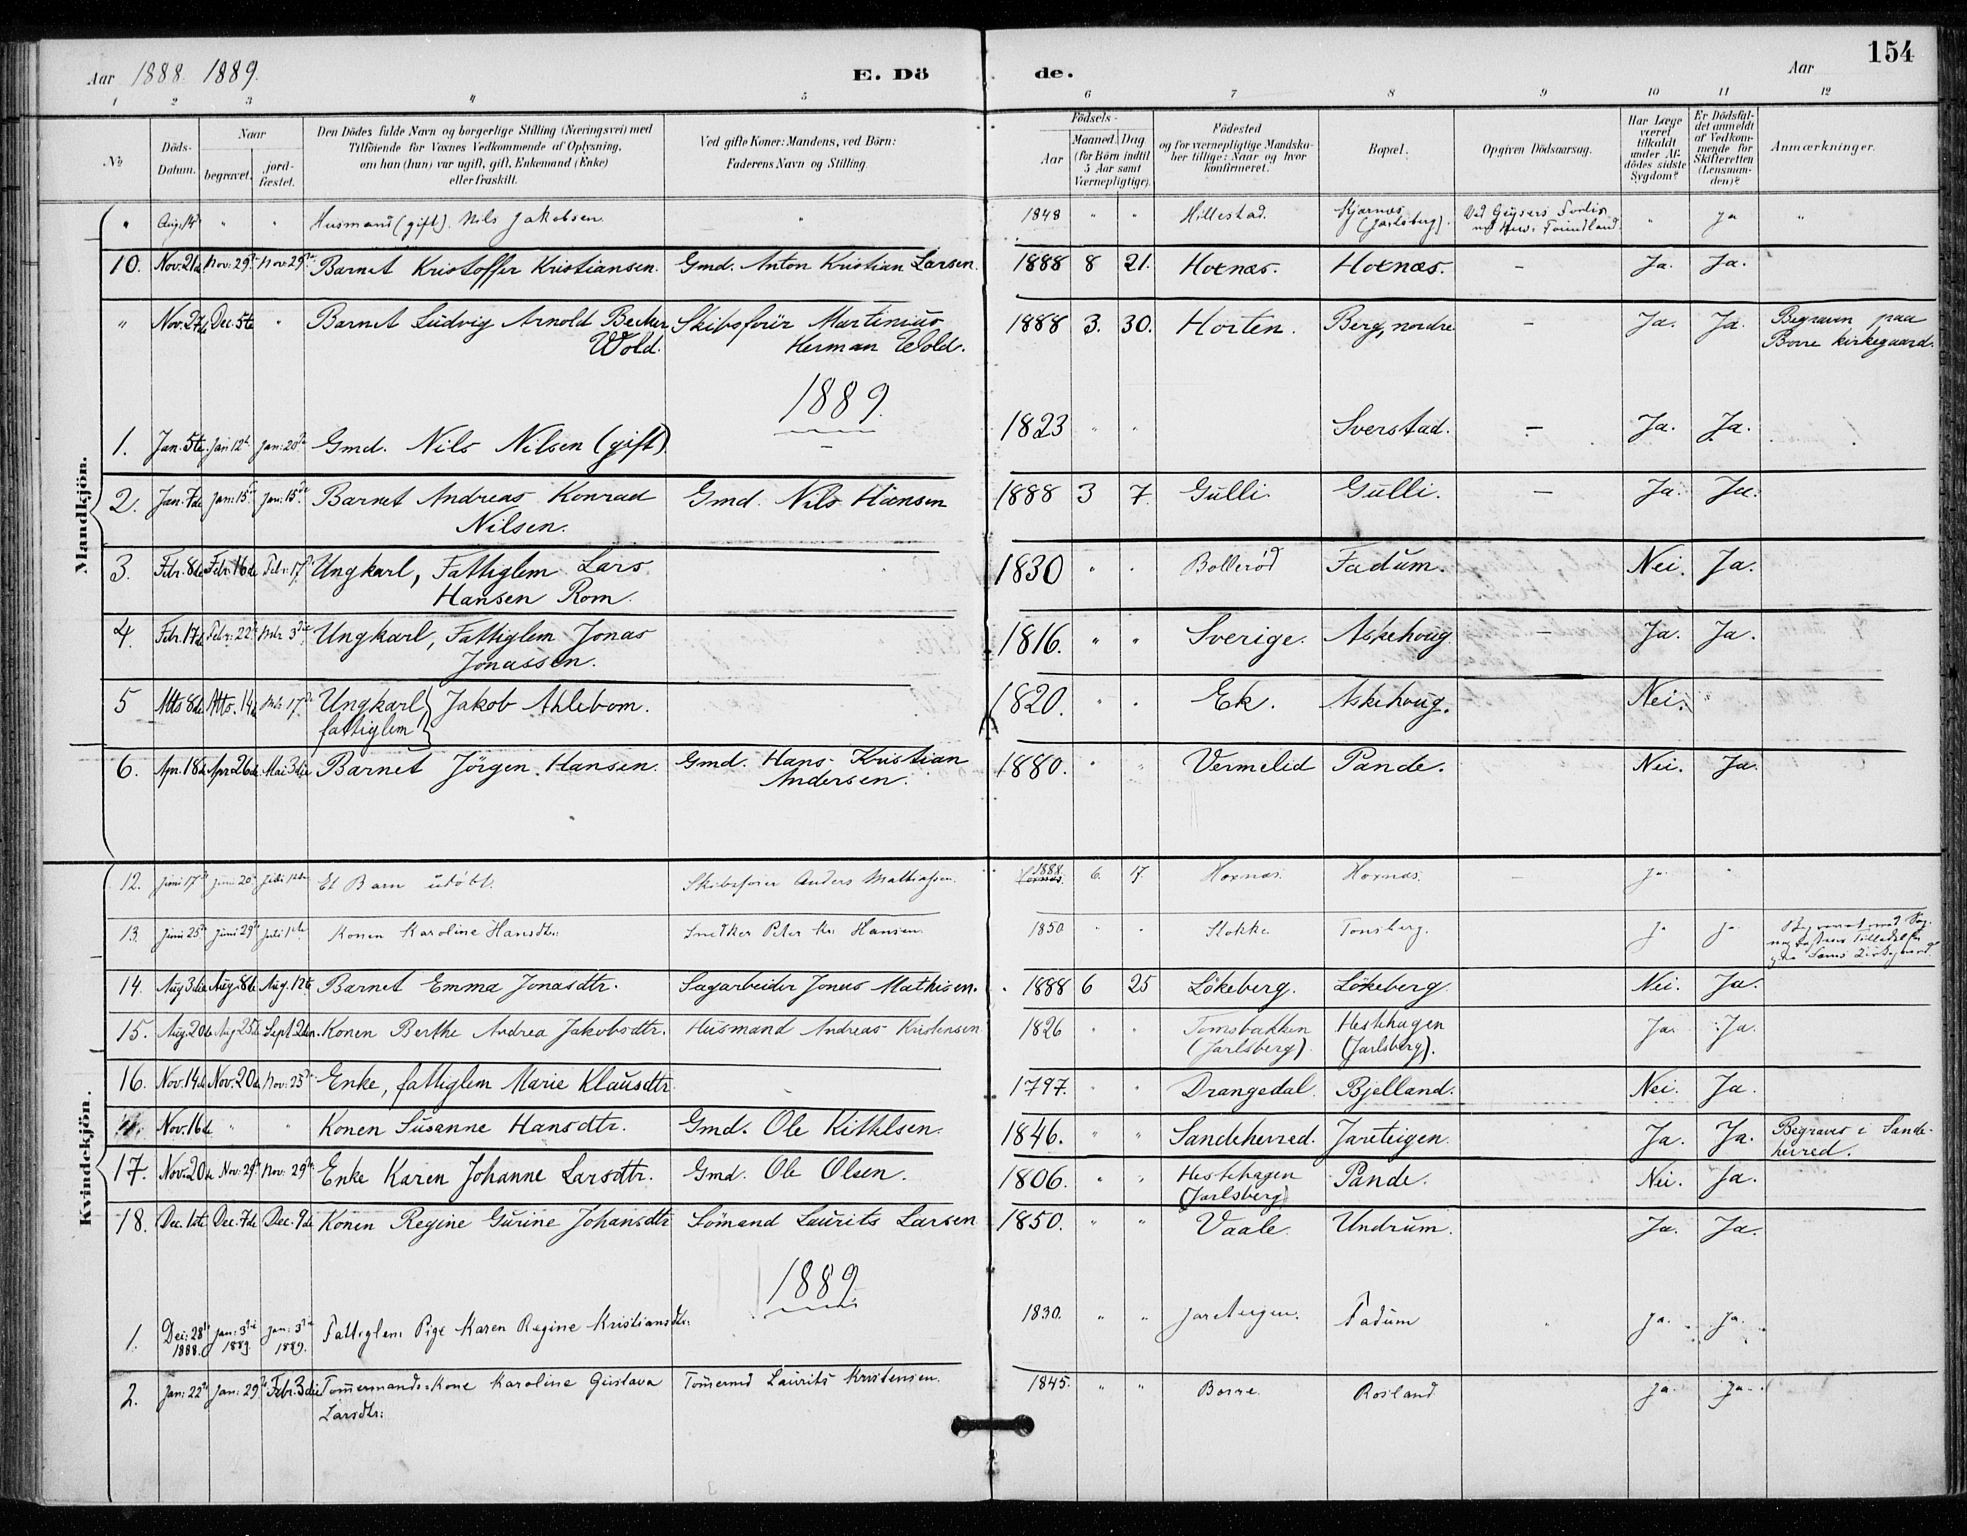 154
Aar 1888. 1889.
E. Dö
de.
Aar
1 2 3 4 5 6 7 8 9 10 11 12
No
Döds-Datum.
Naar
begravet.
jord-fæstet.
Den Dödes fulde Navn og borgerlige Stilling (Næringsvei) med
Tilföiende for Voxnes Vedkommende af Oplysning,
om han (hun) var ugift, gift, Enkemand (Enke)
eller fraskilt.
Ved gifte Koner: Mandens, ved Börn:
Faderens Navn og Stilling
Födsels-
Aar
Maaned. Dag.
(for Börn indtil
5 Aar samt
Værnepligtige).
Födested
og for værnepligtige Mandska-
ber tillige: Naar og hvor
konfirmeret.
Bopæl.
Opgiven Dödsaarsag.
Har Læge
været
tilkaldt
under Af-
dödes sidste
Sygdom?
Er Dödsfal-
det anmeldt
af Vedkom-
mende for
Skifteretten
(Lensman-
den)?
Anmærkninger.
Mandkjön.
" Aug. 14 " " Husmand (gift). Nils Jakobsen. " 1848 " " Hillestad. Kjærnes (Jarlsberg). Ved Geysers Forlis " Ja "
10. Nov. 21de Nov. 29de Nov. 29de Barnet Kristoffer Kristiansen. Gmd. Anton Kristian Larsen. 1888 8 21. Hoxnæs. Hoxnæs. - Ja. Ja.
" Nov. 27de Dec. 5te " Barnet Ludvig Arnold Becker Skibsförer Martinius 1888 3. 30. Horten. Berg, nordre - Ja. Ja. Begraven paa
Wold. Herman Wold. Borre kirkegaard.
1889.
1. Jan. 5te Jan 12te Jan: 20de Gmd. Nils Nilsen (gift). - 1823 " " Sverstad. - Ja. Ja.
2. Jan. 7de Jan: 15de Jan: 15de Barnet Andreas Konrad Gmd. Nils Hansen 1888 3 7. Gulli. Gulli. - Ja. Ja.
Nilsen.
3. Febr. 8de Febr. 16de Febr. 17de Ungkarl, Fattiglem Lars 1830 " " Bollerød Fadum. Nei. Ja.
Hansen Rom.
4. Febr. 17de Febr. 22de Mrts 3die Ungkarl, Fattiglem Jonas 1816. " " Sverige. Askehoug - Ja. Ja.
Jonassen.
5 Mts 8de Mts. 14de Mts 17de Ungkarl Jakob Ahlebom. 1820. " " Ek. Askehoug. Nei. "
fattiglem
6. Apr. 18de Apr 26de Mai 3die Barnet Jörgen Hansen. Gmd. Hans Kristian 1880. " " Vermelid Pande. Nei. Ja.
Andersen.
Kvindekjön.
12. Juni 17de Juni 20de Juli 1ste Et Barn udöbt. Skibsförer Anders Mathiassen. 1888. 6. 17. Hoxnæs. Hoxnæs. - Ja. "
13. Juni 25de Juni 29de Juli 1ste Konen Karoline Hansdtr: Snedker Peter Kr. Hansen. 1850. " " Stokke Tønsberg. Ja Ja
14. Aug 3die Aug. 8de Aug. 12te Barnet Emma Jonasdtr. Sagarbeider Jonas Mathisen. 1888 6 25 Lökeberg. Lökeberg Nei. Ja.
15. Aug. 20de Aug 25de Sept 2den. Konen Berthe Andrea Jakobsdtr. Husmand Andreas Kristensen 1826 " " Tomsbakken Hestehagen Ja. Ja.
(Jarlsberg). (Jarlsberg).
16. Nov. 14de Nov. 20de Nov: 25de Enke, fattiglem Marie Klausdtr. 1797. " " Drangedal. Bjelland. Nei. Ja.
Nov. 16de " " Konen Susanne Hansdtr. Gmd. Ole Kittilsen. 1846. " " Sandeherred. Jareteigen. Ja. Ja. Begraves i Sande-
herred.
17. Nov. 20de Nov: 29de Nov. 29de Enke Karen Johanne Larsdtr. Gmd. Ole Olsen. 1806. " " Hestehagen Pande. Nei. Ja.
(Jarlsberg)
18. Dec. 1ste Dec. 7de Dec. 9de Konen Regine Gurine Johansdtr Sömand Laurits Larsen 1850. " " Vaale. Undrum. Ja. Ja.
1889
1. Dec: 28de Jan: 3die Jan: 3die Fattiglem Pige Karen Regine Kristiansdtr: 1830. " " Jareteigen. Fadum " Ja. Ja.
1888. 1889 1889.
2. Jan: 22de Jan: 29de Febr. 3die Tömermands Kone Karoline Gustava Tömermd Laurits Kristensen. 1845. " " Borre. Rosland Ja. Ja.
Larsdtr: